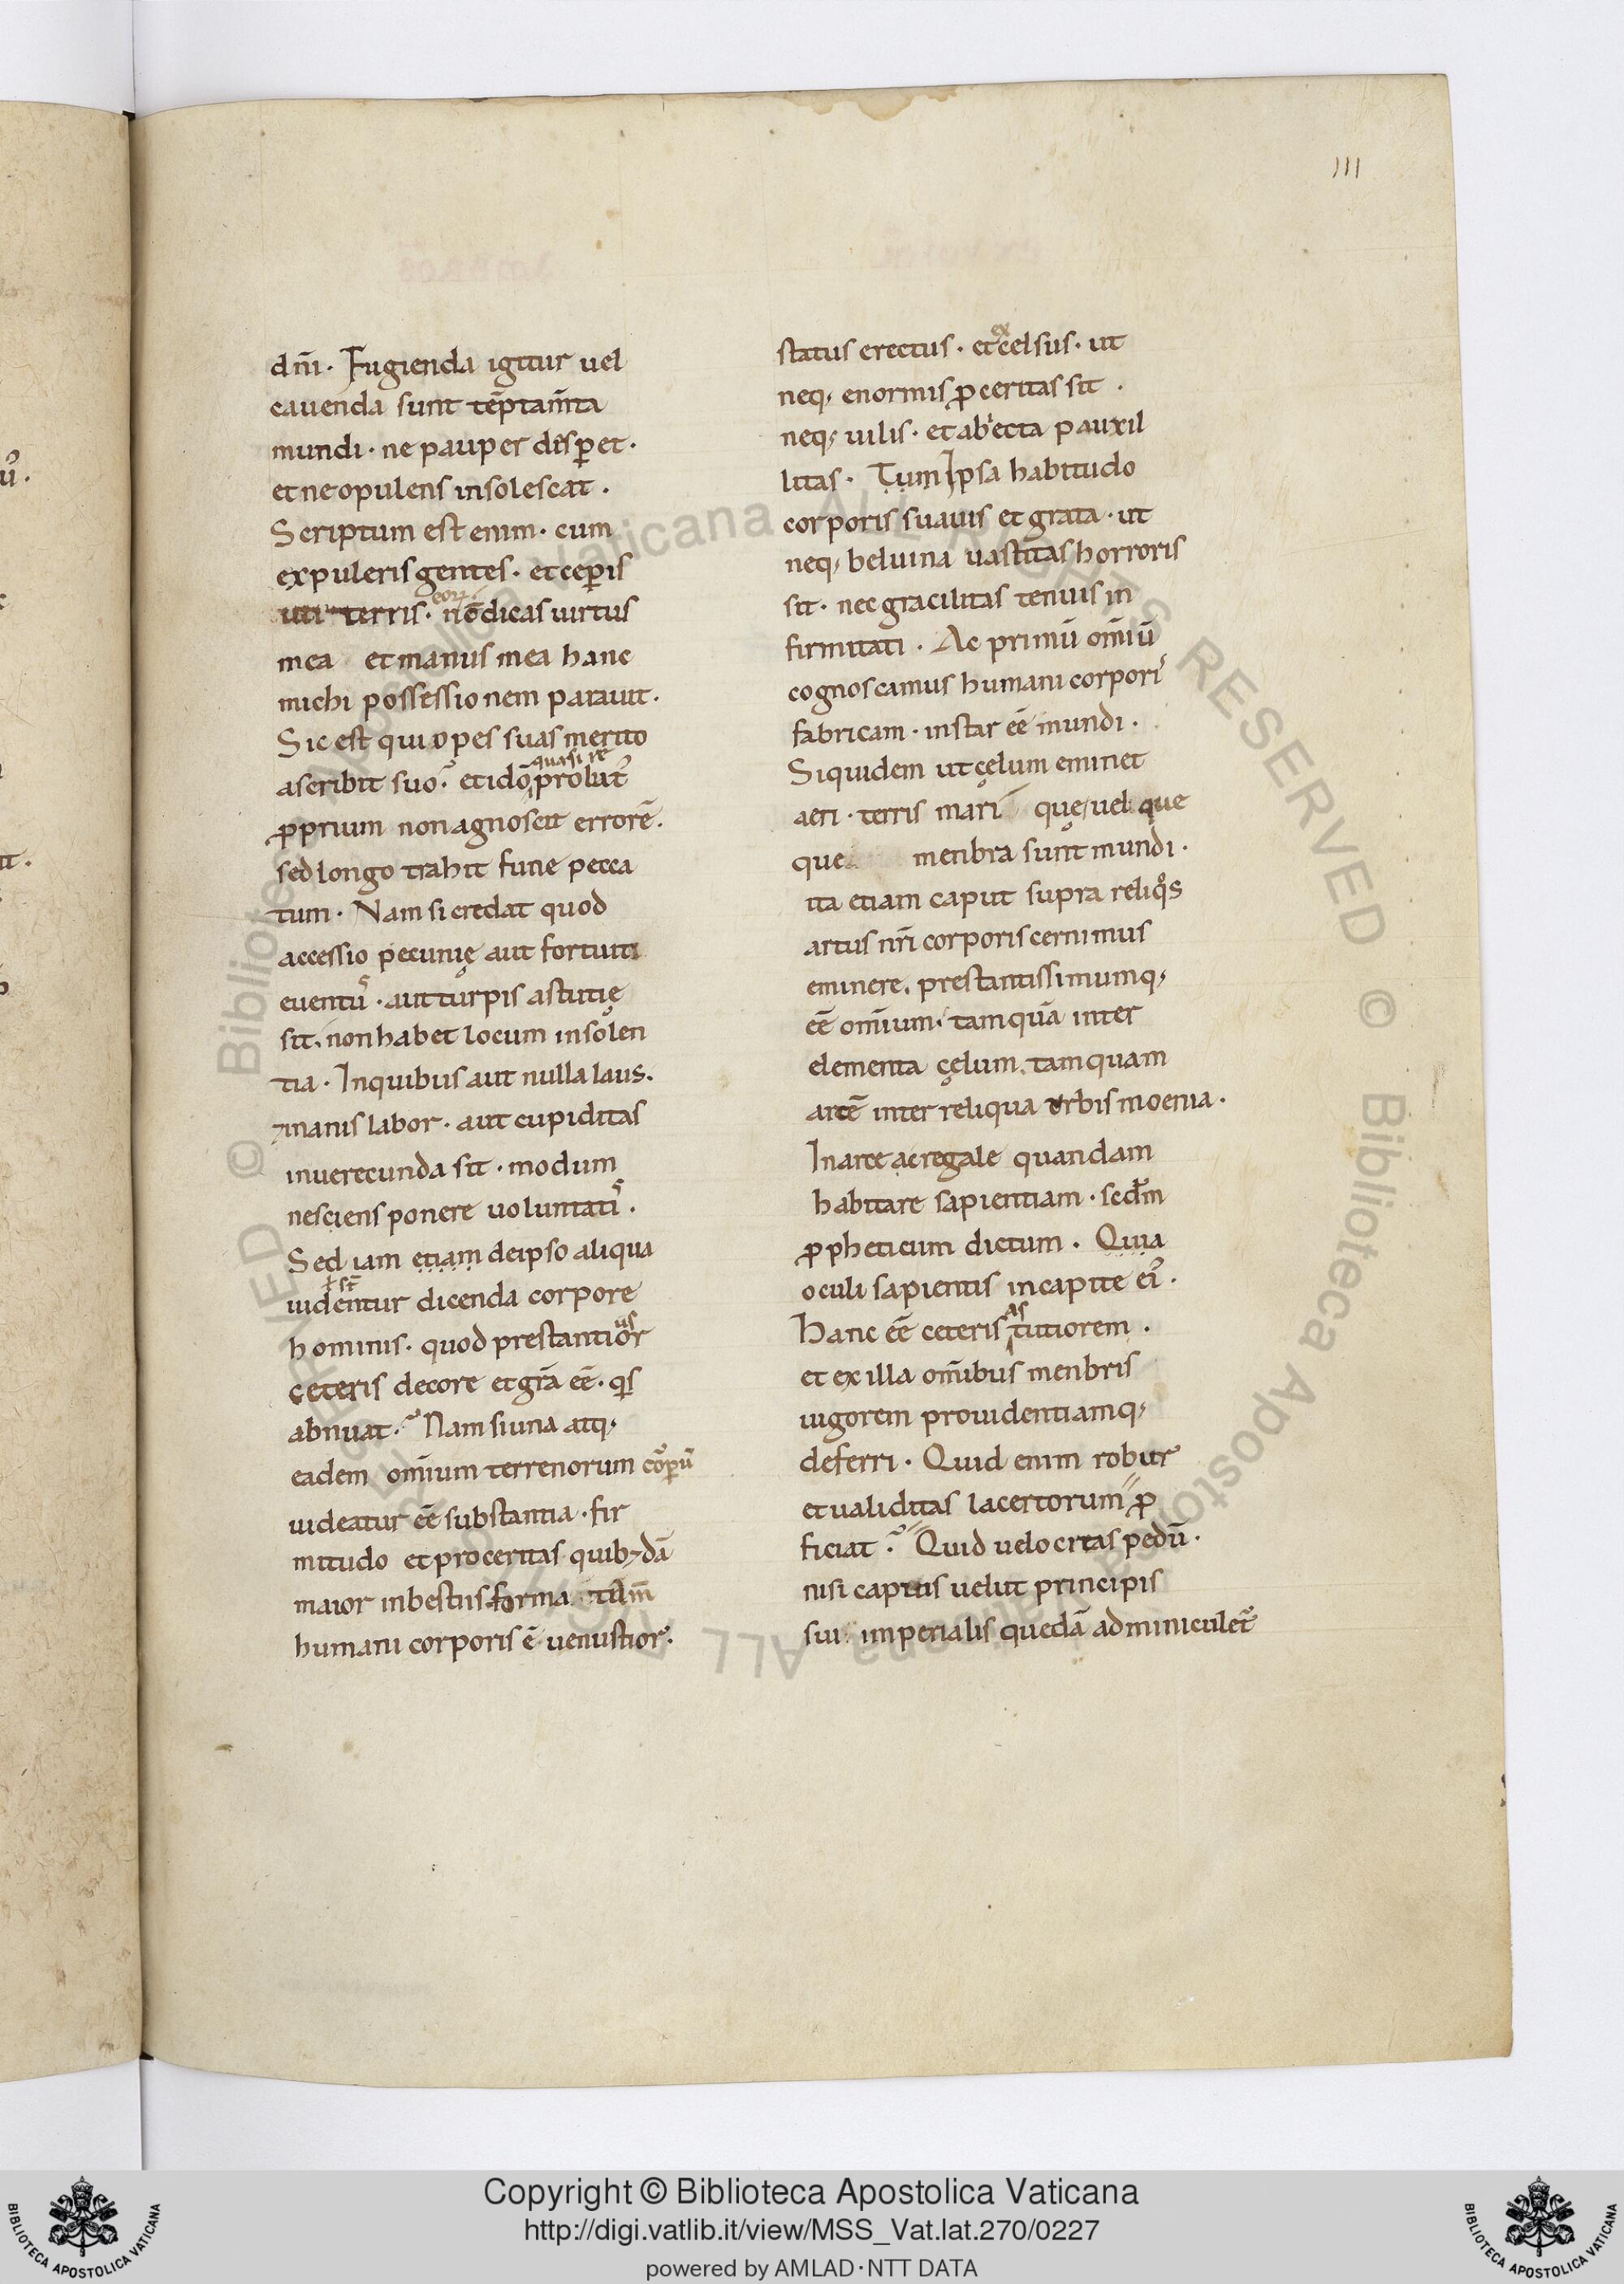 111
dm̄i. Fugienda igitur uel
cauenda sunt tēptam̄ta
mundi. ne pauper desꝑet.
et ne opulens insolescat.
Scriptum est enim. cum
expuleris gentes. et ceꝑis
uti terris. nōdicas uirtus
eoꝝ
mea et manus mea hanc
michi possessionem parauit.
Sic est qui opes suas merito
ascribit suo. et idō probat᷒
quasi re
ꝓprium non agnoscit errorē.
sed longo trahit fune pecca
tum. Nam si credat quod
accessio pecunię aut fortuiti
euentus. aut turpis astutię
sit. non habet locum insolen
tia. In quibus aut nulla laus.
inanis labor. aut cupiditas
inuerecunda sit. modum
nesciens ponere uoluntatis.
Sed iam etiam deipso aliqua
ł st̄
uidentur dicenda corpore
hominis. quod prestantior
us
ceteris decore et grā eē. qis
abnuat. Nam si una atq;
eadem om̄ium terrenorum corꝑū
uideatur eē substantia. fir
mitudo et proceritas quib; dā
maior in bestiis forma tam̄
humani corporis ē uenustior.
status erectus. et celsus. ut
ex
neq; enormis ꝓceritas sit.
neq; uilis. et abiecta pauxil
litas. Tum Ipsa habitudo
corporis suauis et grata. ut
neq; beluina uastitas horroris
sit. nec gracilitas tenuis in
firmitati. Ac primū om̄iū
cognoscamus humani corporis
fabricam. instar eē mundi.
Siquidem ut cęlum eminet
aeri. terris mari que uel que
que menbra sunt mundi.
ita etiam caput supra reliqos
artus nr̄i corporis cernimus
eminere. prestantissimumq;
eē om̄ium. tamquā inter
elementa cęlum. tamquam
arcē inter reliqua urbis moenia.
In arce ac regale quandam
habitare sapientiam. secdm̄
ꝓpheticum dictum. Quia
oculi sapientis in capite ei᷒.
Hanc eē ceteris tutiorem.
as
et ex illa om̄ibus menbris
uigorem prouidentiamq;
deferri. Quid enim robur
et ualiditas lacertorum ꝓ
ficiat. Quid uelocitas pedū.
nisi capitis uelut principis
sui imperialis quedā adminiculet᷒
Copyright © Biblioteca Apostolica Vaticana
http://digi.vatlib.it/view/MSS_Vat.lat.270/0227
powered by AMLAD·NTT DATA
BIBLIOTECA APOSTOLICA VATICANA
BIBLIOTECA APOSTOLICA VATICANA